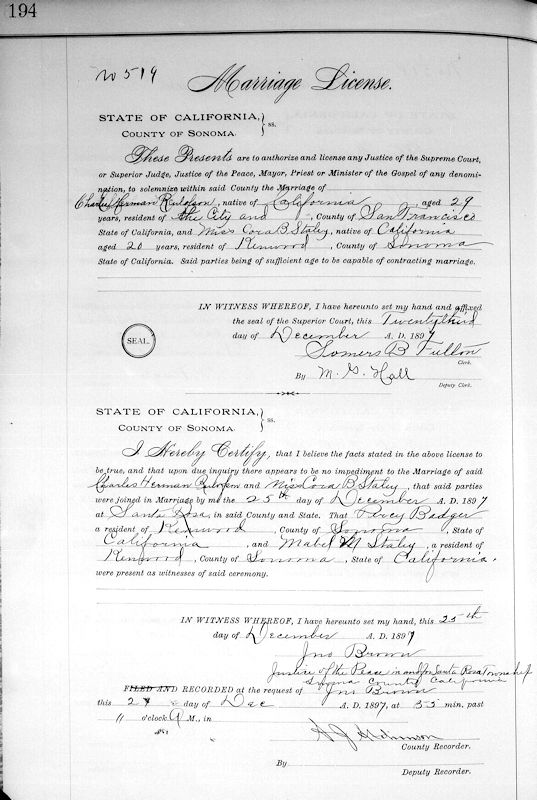 194
No 519 Marriage License.
STATE OF CALIFORNIA, } ss.
COUNTY OF SONOMA.
These Presents are to authorize and license any Justice of the Supreme Court,
or Superior Judge, Justice of the Peace, Mayor, Priest or Minister of the Gospel of any denomi-
nation, to solemnize within said County the Marriage of
Charles Herman , native of California , aged 29
years, resident of the City and , County of San Francisco
State of California, and Miss Cora B. Staley, native of California
aged 20 years, resident of Kenwood , County of Sonoma
State of California. Said parties being of sufficient age to be capable of contracting marriage.
IN WITNESS WHEREOF, I have hereunto set my hand and affixed
the seal of the Superior Court, this Twentythird
SEAL. day of December A. D. 1897
Somers B Fulton
Clerk.
By M. G. Hall
Deputy Clerk.
STATE OF CALIFORNIA, } ss.
COUNTY OF SONOMA.
I Hereby Certify, that I believe the facts stated in the above license to
be true, and that upon due inquiry there appears to be no impediment to the Marriage of said
Charles Herman and Miss Cora B. Staley, that said parties
were joined in Marriage by me the 25th day of December A. D. 1897
at Santa Rosa, in said County and State. That Percy Badger
a resident of Kenwood , County of Sonoma , State of
California , and Mabel M Staley, a resident of
Kenwood, County of Sonoma, State of California,
were present as witnesses of said ceremony.
IN WITNESS WHEREOF, I have hereunto set my hand, this 25th
day of December A. D. 1897
Jno Brown
Justice of the Peace in and for Santa Rosa Township
Sonoma County California
FILED AND RECORDED at the request of Jno Brown
this day of Dec A. D. 1897, at 35 min. past
11 o'clock A M., in
County Recorder.
By
Deputy Recorder.